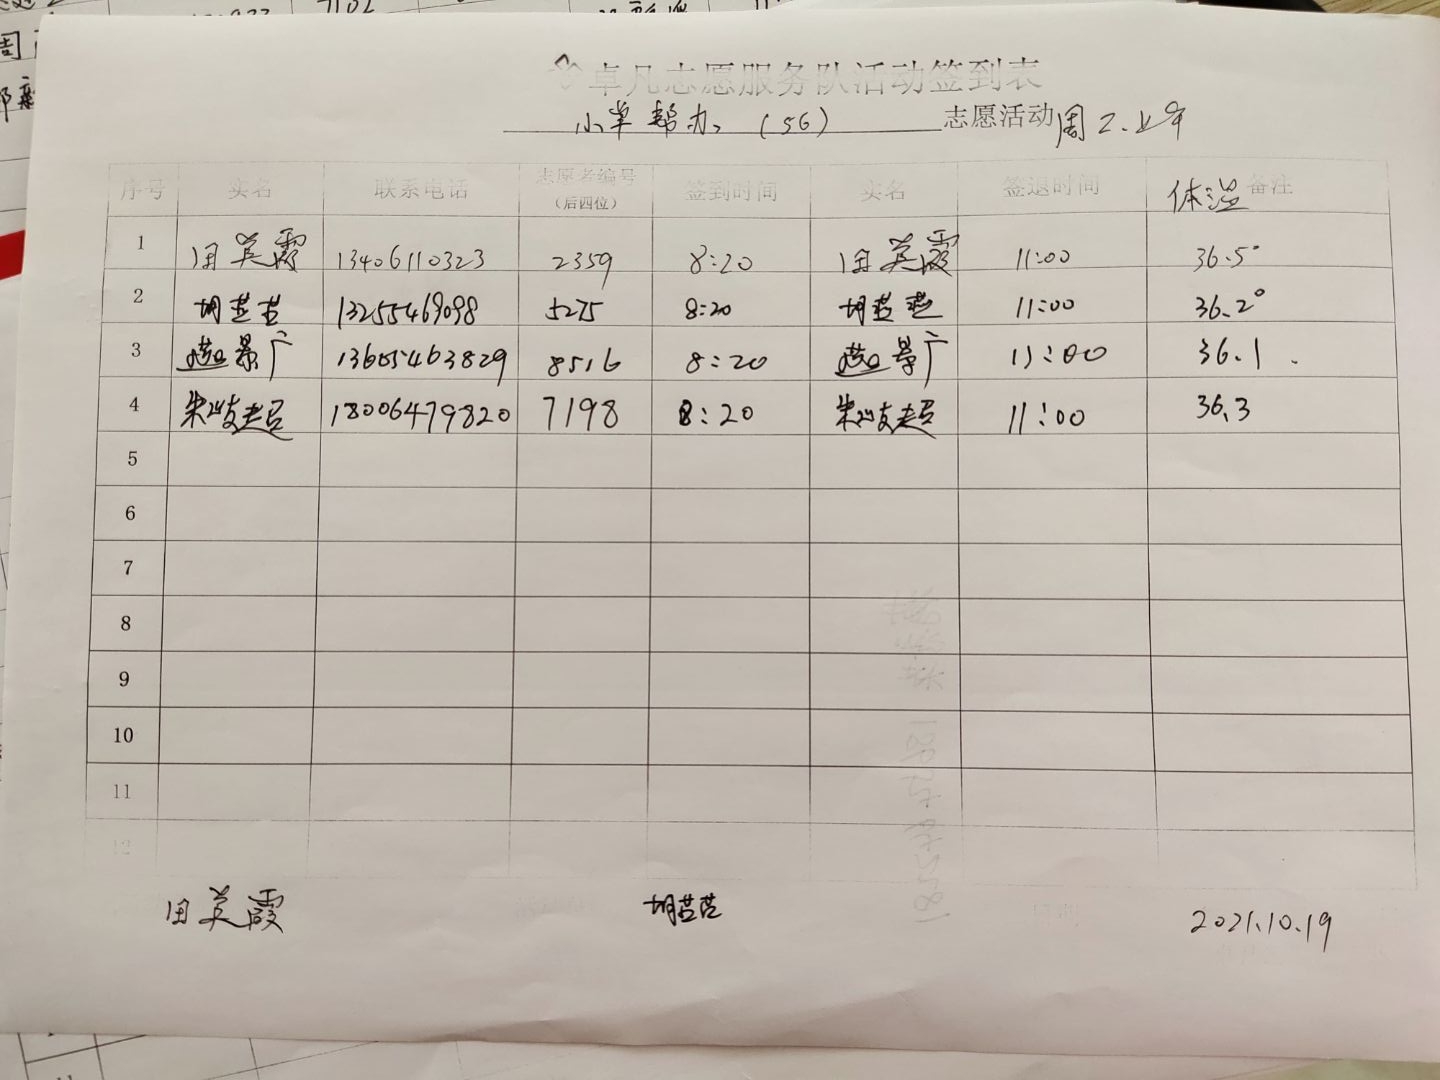 卓凡志愿服务队活动签到表
小草帮办（56） 志愿活动 周二.上午
序号 实名 联系电话 志愿者编号（后四位） 签到时间 实名 签退时间 体温 备注
1 田英霞 13406110323 2359 8:20 田英霞 11:00 36.5°
2 胡芸芸 13255469098 5275 8:20 胡芸芸 11:00 36.2°
3 景广 13605463829 8516 8:20 景广 11:00 36.1
4 18006479820 7198 8:20 11:00 36.3
5
6
7
8
9
10
11
12
田英霞 胡芸芸 2021.10.19